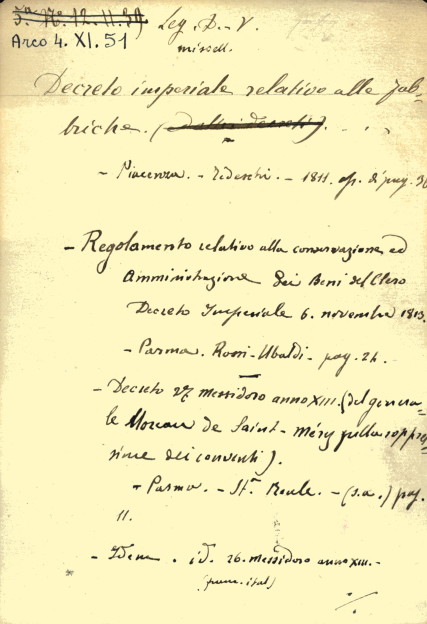 Leg. D. V.
Arco 4. XI. 51
miscell.
Decreto imperiale relativo alle fab-
briche. (Dalli decreti). . ,
- Piacenza. - Tedeschi. - 1811. op. di pag. 36
- Regolamento relativo alla conservazione ed
Amministrazione dei Beni del Clero
Decreto Imperiale 6. novembre 1813.
- Parma. Rossi-Ubaldi - pag. 24.
- Decreto 27 messidoro anno XIII. (del genera-
le Moreau de Saint-Méry sulla soppres-
sione dei conventi).
- Parma. - St. Reale. - (s.a.) pag.
11.
- Idem. id. 26. messidoro anno XIII. -
(franc. ital)